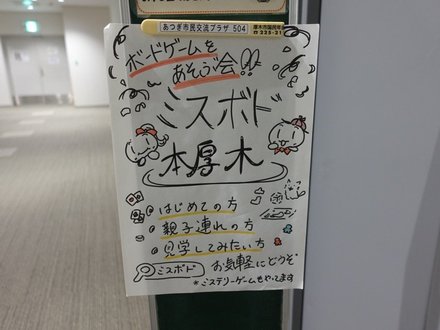 あつぎ市民交流プラザ 504
ボードゲームを
あそぶ会!!
ミスボド
本厚木
・はじめての方
・親子連れの方
・見学してみたい方
ミスボド
お気軽にどうぞ
*ミステリーゲームもやってます